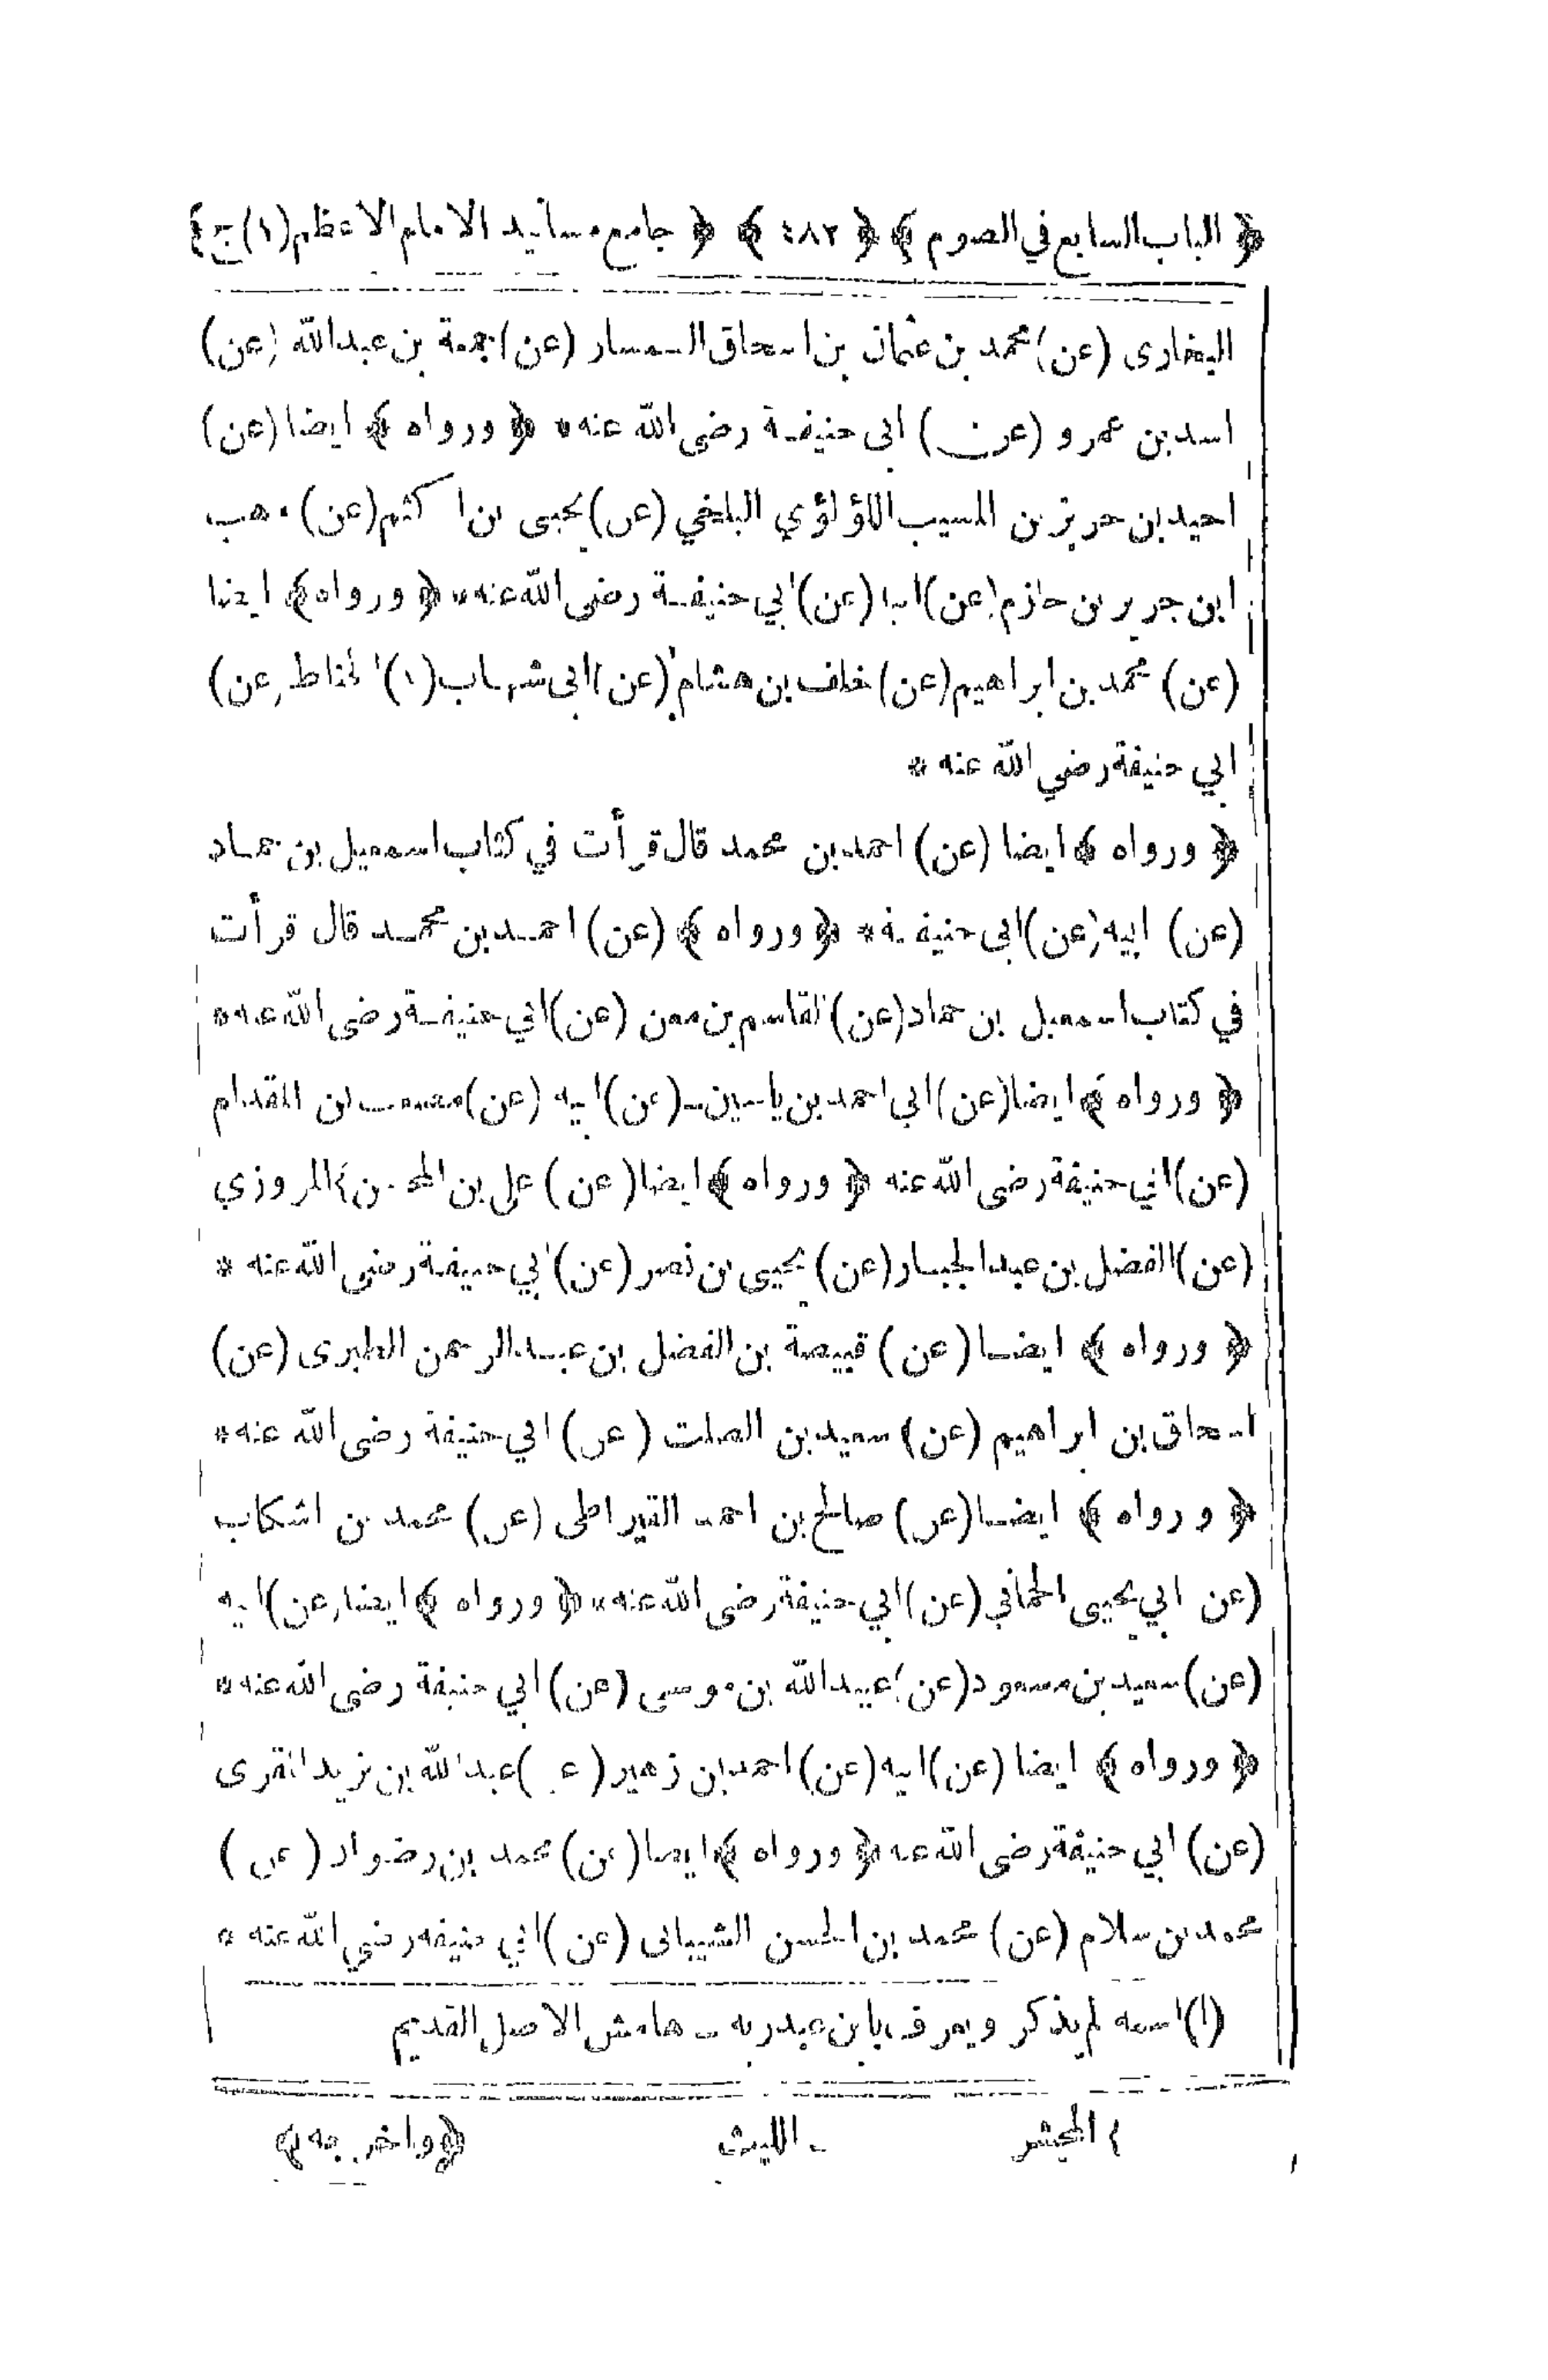 ﴿ الباب السابع في الصوم ﴾ ﴿ ٤٨٢ ﴾ ﴿ جامع مسانيد الامام الاعظم (١) ج ﴾
البخارى (عن) محمد بن عثمان بن اسحاق السمسار (عن) جمعة بن عبد الله (عن)
اسد بن عمرو (عن) ابى حنيفة رضى الله عنه * ﴿ ورواه ﴾ ايضا (عن)
احيد بن حريز بن المسيب اللؤلؤي البلخي (عن) يحيى بن اكثم (عن) وهب
ابن جرير بن حازم (عن) ابيا (عن) ابي حنيفة رضى الله عنه * ﴿ ورواه ﴾ ايضا
(عن) محمد بن ابراهيم (عن) خلف بن هشام (عن) ابى شهاب (١) الحناط (عن)
ابي حنيفة رضي الله عنه *
﴿ ورواه ﴾ ايضا (عن) احمد بن محمد قال قرأت في كتاب اسمعيل بن حماد
(عن) ابيه (عن) ابى حنيفة * ﴿ ورواه ﴾ (عن) احمد بن محمد قال قرأت
في كتاب اسمعيل بن حماد (عن) القاسم بن معن (عن) ابي حنيفة رضى الله عنه *
﴿ ورواه ﴾ ايضا (عن) ابي احمد بن ياسين (عن) ابيه (عن) مصعب بن المقدام
(عن) ابي حنيفة رضى الله عنه ﴿ ورواه ﴾ ايضا (عن) على بن المروزي
(عن) الفضل بن عبد الجبار (عن) يحيى بن نصر (عن) ابي حنيفة رضى الله عنه *
﴿ ورواه ﴾ ايضا (عن) قبيصة بن الفضل بن عبد الرحمن الطبرى (عن)
اسحاق بن ابراهيم (عن) سعيد بن الصلت (عن) ابي حنيفة رضى الله عنه *
﴿ ورواه ﴾ ايضا (عن) صالح بن احمد القيراطى (عن) محمد بن اشكاب
(عن ابي يحيى الحماني (عن) ابي حنيفة رضى الله عنه * ﴿ ورواه ﴾ ايضا (عن) ابيه
(عن) سعيد بن مسعود (عن) عبيد الله بن موسى (عن) ابي حنيفة رضى الله عنه *
﴿ ورواه ﴾ ايضا (عن) ابيه (عن) احمد بن زهير (عن) عبد الله بن يزيد المقرى
(عن) ابي حنيفة رضى الله عنه ﴿ ورواه ﴾ ايضا (عن) محمد بن رضوان (عن)
محمد بن سلام (عن) محمد بن الحسن الشيبانى (عن) ابي حنيفه رضي الله عنه *
(١) اسمه لم يذكر ويعرف بابن عبد ربه - هامش الاصل القديم
المحشر الليث ﴿ واخرجه ﴾